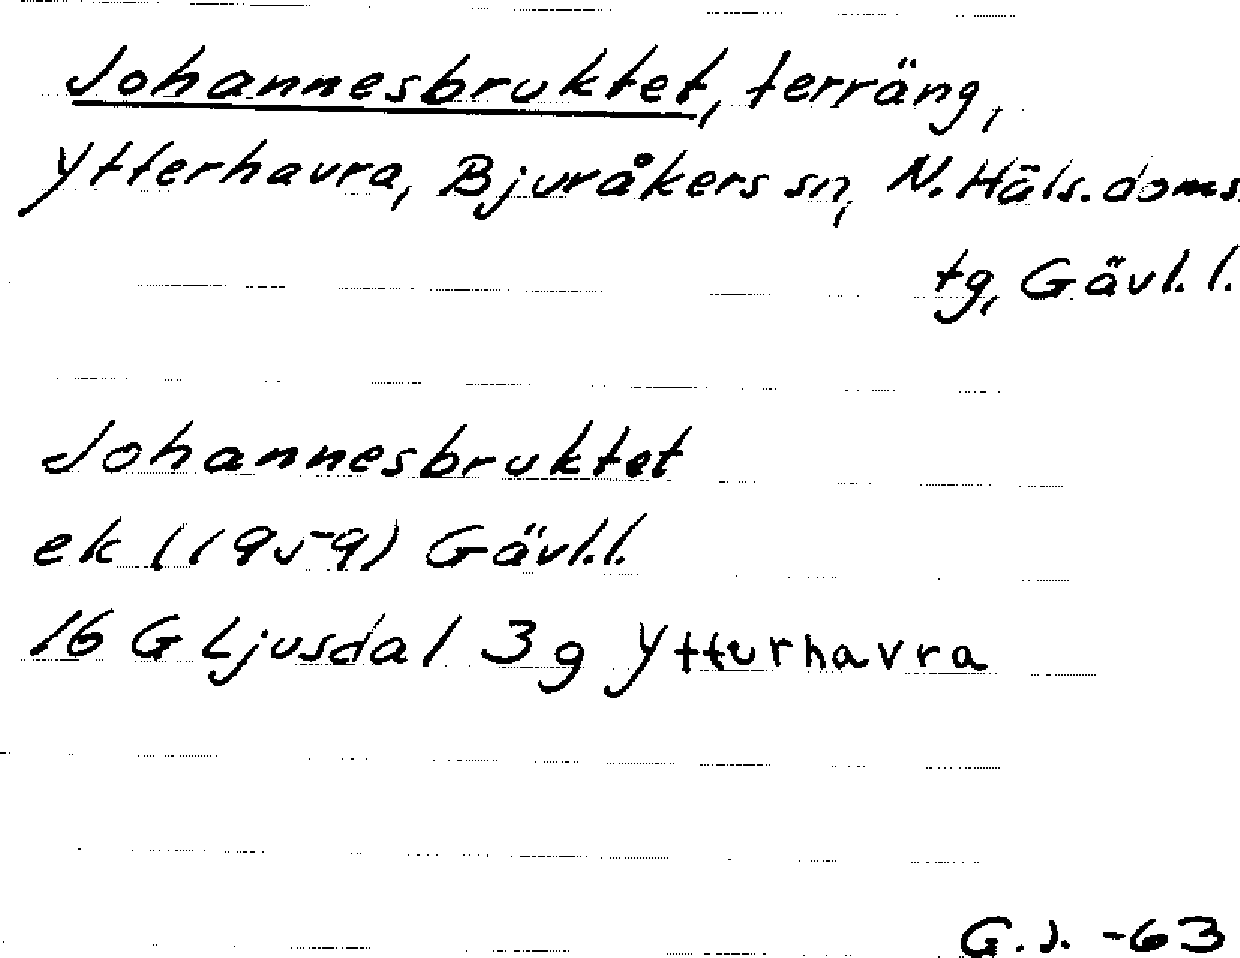 Johannesbruktet, terräng,
Ytterhavra, Bjuråkers sn, N. Häls. doms.
tg, Gävl. l.
Johannesbruktet
ek (1959) Gävl. l.
16 G Ljusdal 3 g Ytturhavra
G.J. -63